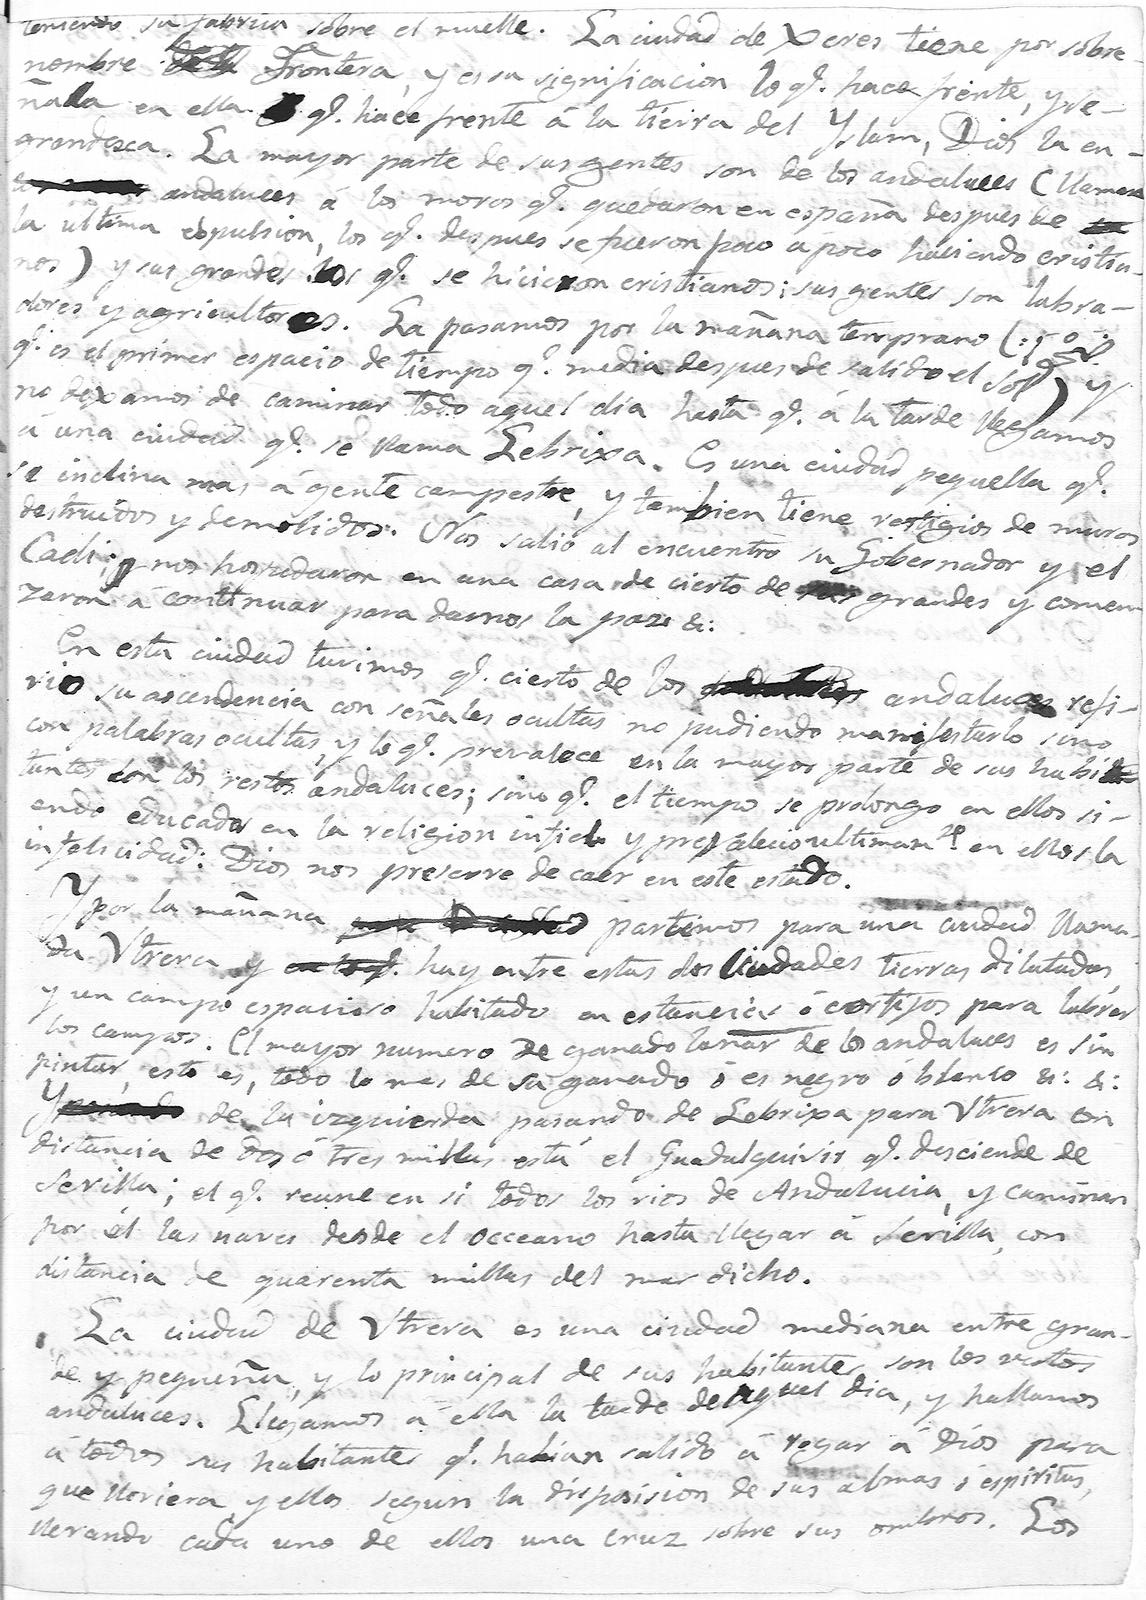 teniendo su fabrica sobre el muelle. La ciudad de Xeres tiene por sobre-
nombre Frontera, y es su significacion lo q.e hace frente, y se-
ñala en ella q.e hace frente á la tierra del Yslam, Dios la en-
grandesca. La mayor parte de sus gentes son de los andaluces (llaman
andaluces á los moros q.e quedaron en españa despues de
la ultima expulsion, los q.e despues se fueron poco a poco haciendo cristia-
nos) y sus grandes los q.e se hicieron cristianos; sus gentes son labra-
dores y agricultores. La pasamos por la mañana temprano (
q.e es el primer espacio de tiempo q.e media despues de salido el Sol) y
no dexamos de caminar todo aquel dia hasta q.e á la tarde llegamos
á una ciudad q.e se llama Lebrixa. Es una ciudad pequella q.e
se inclina mas á gente campestre, y tambien tiene vestigios de muros
destruidos y demolidos. Nos salió al encuentro su Gobernador y el
Cadi; y nos hospedaron en una casa de cierto de grandes y comen
zaron á continuar para darnos la paz &:
En esta ciudad tuvimos q.e cierto de los andaluces refi-
rió su ascendencia con señales ocultas no pudiendo manifestarlo sino
con palabras ocultas, y lo q.e prevalece en la mayor parte de sus habi
tantes son los restos andaluces; sino q.e el tiempo se prolongo en ellos si-
endo educados en la religion infiel y prevalecio ultiman.te en ellos la
infelicidad: Dios nos preserve de caer en este estado.
Y por la mañana partimos para una ciudad llama-
da Vtrera y hay entre estas dos Ciudades tierras dilatadas
y un campo espacioso habitado en estancias ó cortijos para labrar
los campos. El mayor numero de ganado lanar de los andaluces es sin
pintar, esto es, todo lo mas de su ganado ó es negro ó blanco &: &:
Y de la izquierda pasando de Lebrixa para Vtrera en
distancia de dos ó tres millas está el Guadalquivir q.e desciende de
Sevilla; el q.e reune en si todos los rios de Andalucia, y caminan
por él las naves desde el occeano hasta llegar á Sevilla, con
distancia de quarenta millas del mar dicho.
La ciudad de Vtrera es una ciudad mediana entre gran-
de y pequeña, y lo principal de sus habitantes son los restos
andaluces. Llegamos á ella la tarde de aquel dia, y hallamos
á todos sus habitantes q.e habian salido á rogar á Dios para
que lloviera y ellos segun la disposision de sus almas ó espiritus,
llevando cada uno de ellos una cruz sobre sus ombros. Los